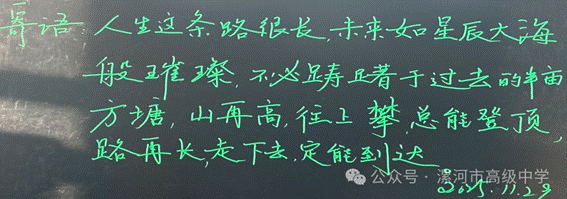 寄语:人生这条路很长,未来如星辰大海
般璀璨,不必踌躇于过去的半亩
方塘,山再高,往上攀,总能登顶,
路再长,走下去,定能到达
公众号·漯河市高级中学
2025.11.29